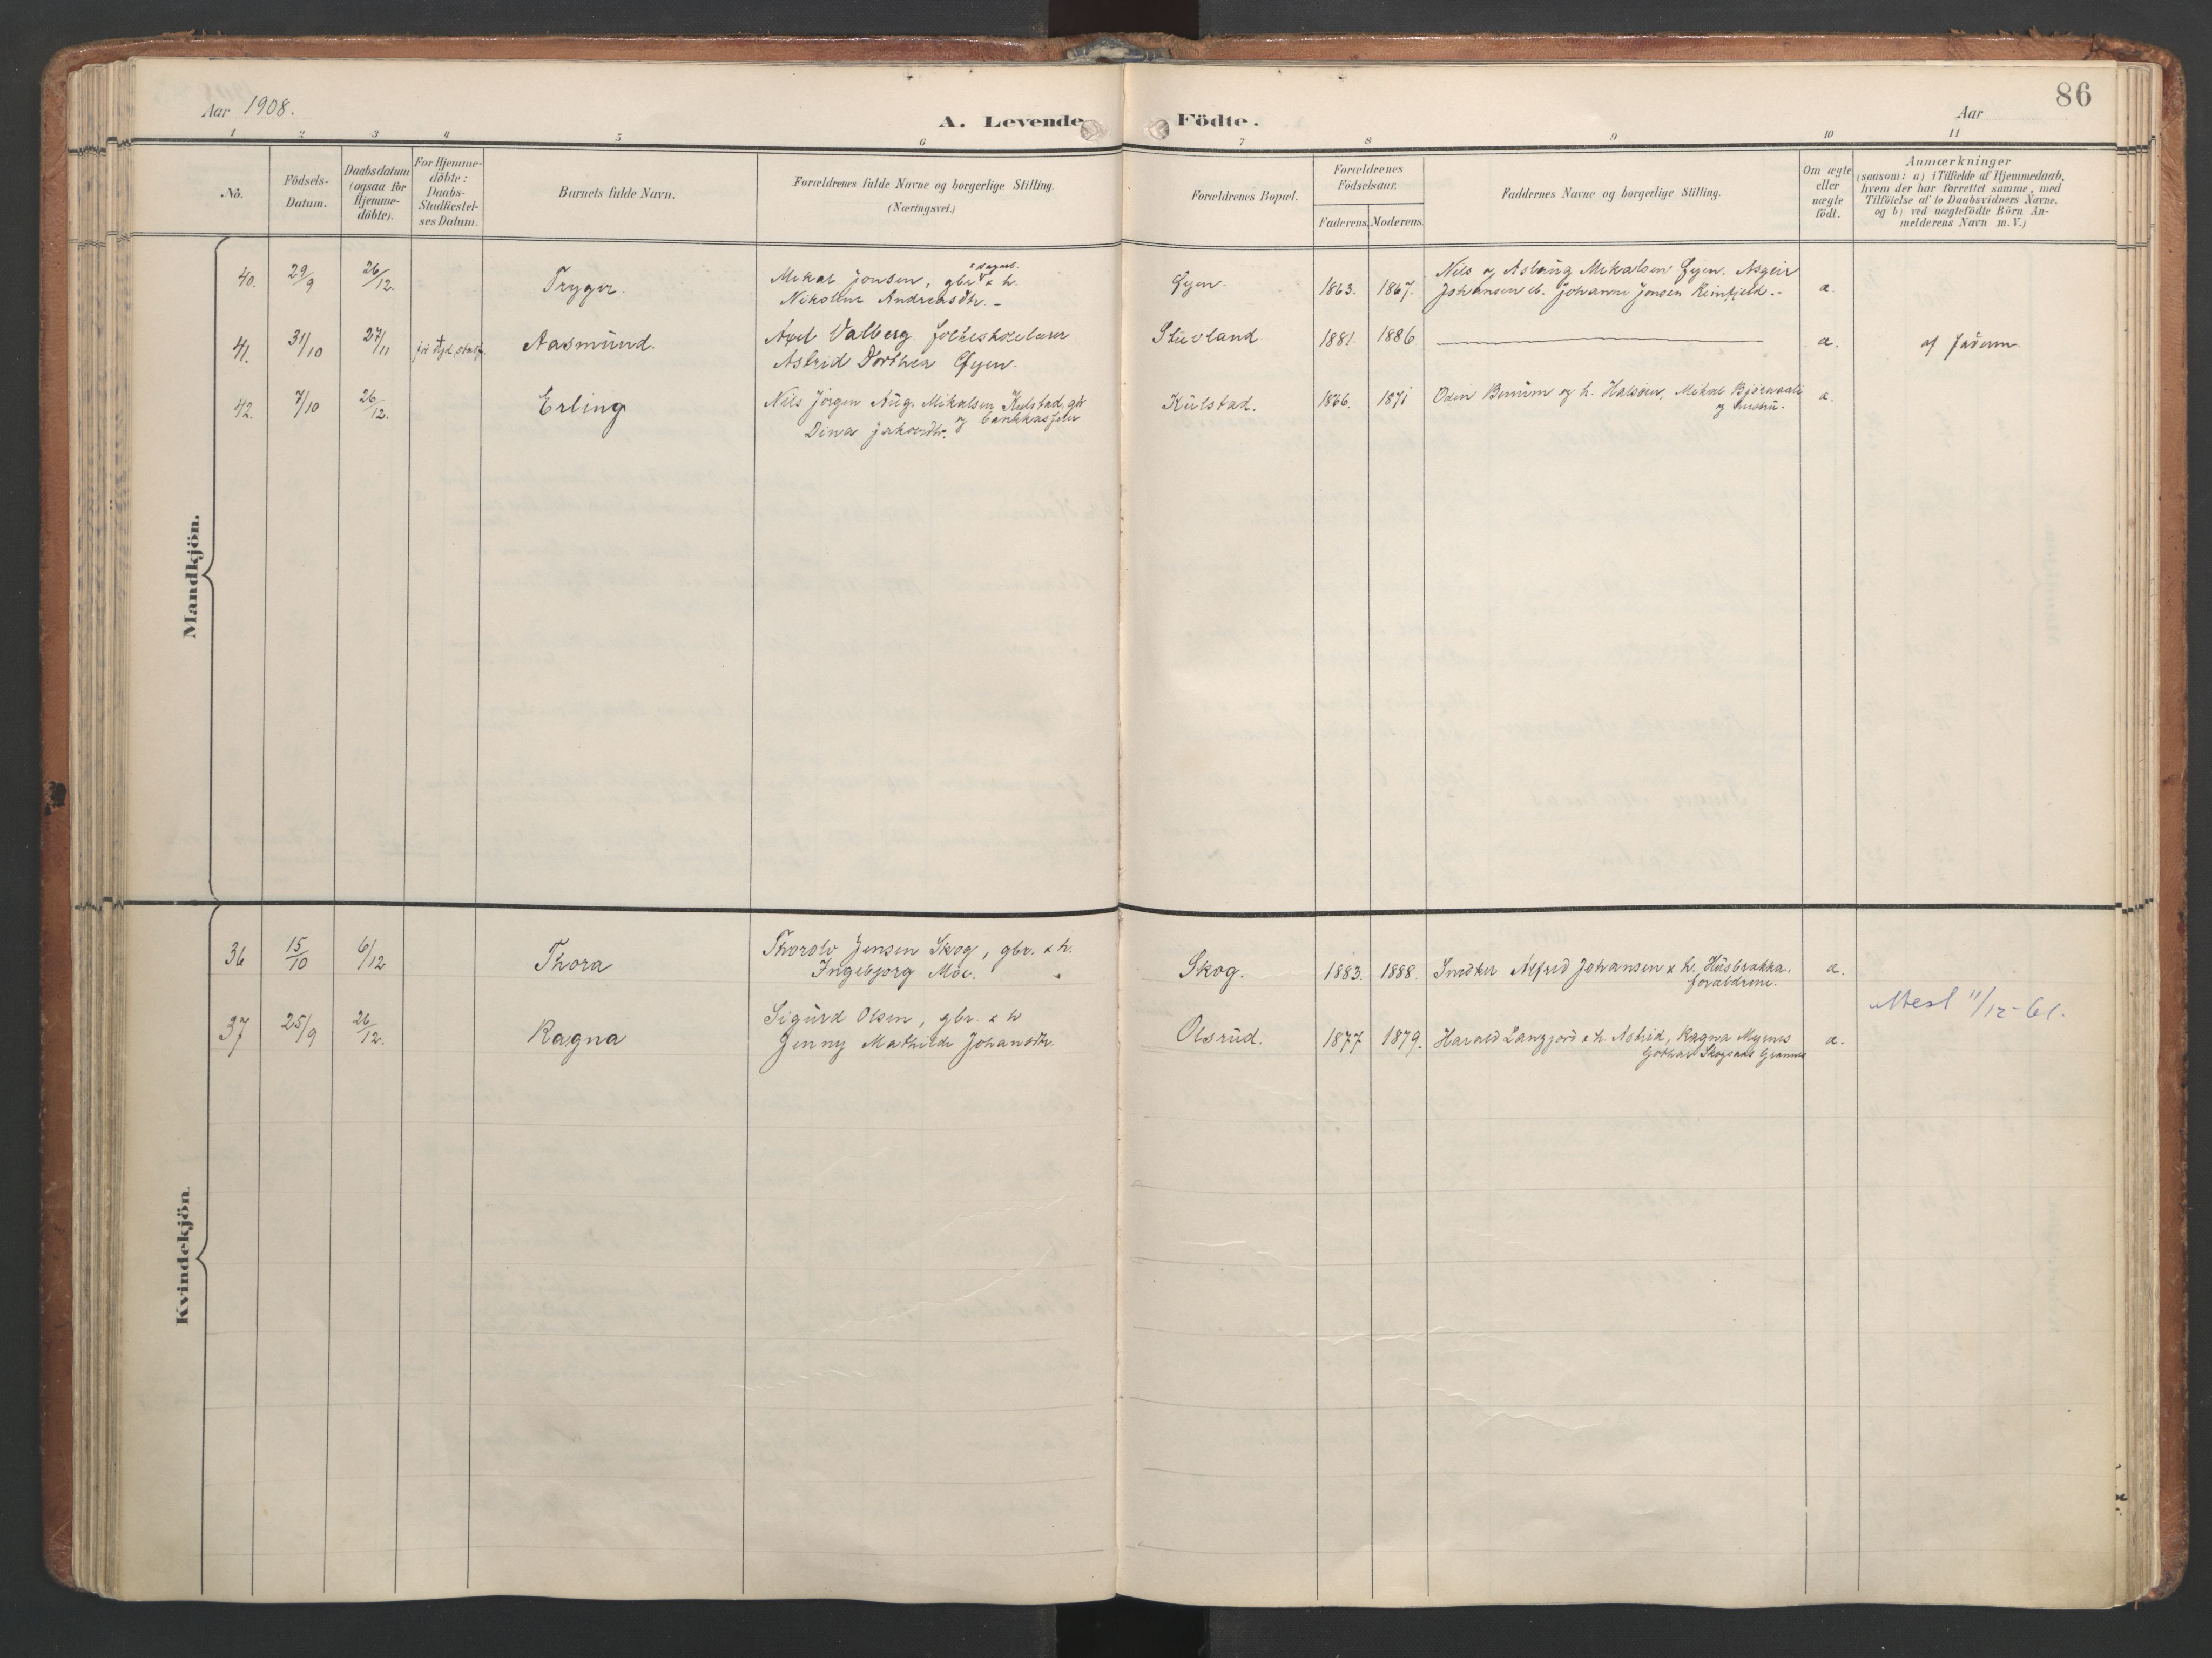 Aar 1908.
A. Levende Födte.
Aar
86
1 2 3 4 5 6 7 8 9 10 11
No.
Födsels-
Datum.
Daabsdatum
(ogsaa for
Hjemme-
döbte).
For Hjemme-
döbte:
Daabs-
Stadfæstel-
ses Datum.
Barnets fulde Navn.
Forældrenes fulde Navne og borgerlige Stilling.
(Næringsvei.)
Forældrenes Bopæl.
Forældrenes
Födselsaar.
Faderens. Moderens.
Faddernes Navne og borgerlige Stilling.
Om ægte
eller
uægte
födt.
Anmærkninger
(saasom: a) i Tilfælde af Hjemmedaab,
hvem der har forrettet samme, med
Tilföielse af to Daabsvidners Navne.
og b) ved uægtefödte Börn An-
melderens Navn m. V.)
Mandkjön.
40. 29/9 26/12. Trygve. Mikal Jonsen, gbr. & h.
Nikoline Andreasdtr. -
Øyen. 1863. 1867.
Nils og Aslaug Mikalsen Øyen. Asgeir
Johansen Johanne Jonsen Reinfjeld. -
a.
41. 31/10 27/11 Aasmund. Axel Valberg folkeskolelærer
Astrid Dorthea Øyen.
Stuvland 1881. 1886 a. af faderen
42. 7/10 26/12. Erling Nils Jörgen Aug. Mikalsen Kulstad, gbr
og bankkasserer
Dina Jakobsdtr.
Kulstad. 1866. 1871 Odin Benum og h. Halsöen, Mikal Bjørnaali
og hustru.
a.
Kvindekjön.
36 15/10 6/12 Thora Thorolv Jensen Skog, gbr. & h.
Ingebjorg Moe. "
Skog. 1883. 1888. Smedker Alfred Johansen & h. Husbrakka.
forældrene.
a.
Attest 11/12-61.
37 25/9 26/12. Ragna Sigurd Olsen, gbr. & h
Jenny Mathilde Johansdtr.
Olsrud. 1877 1879. Harald Langjord & h. Astrid, Ragna Myrnes
Gothard Skogsaas Grannes
a.